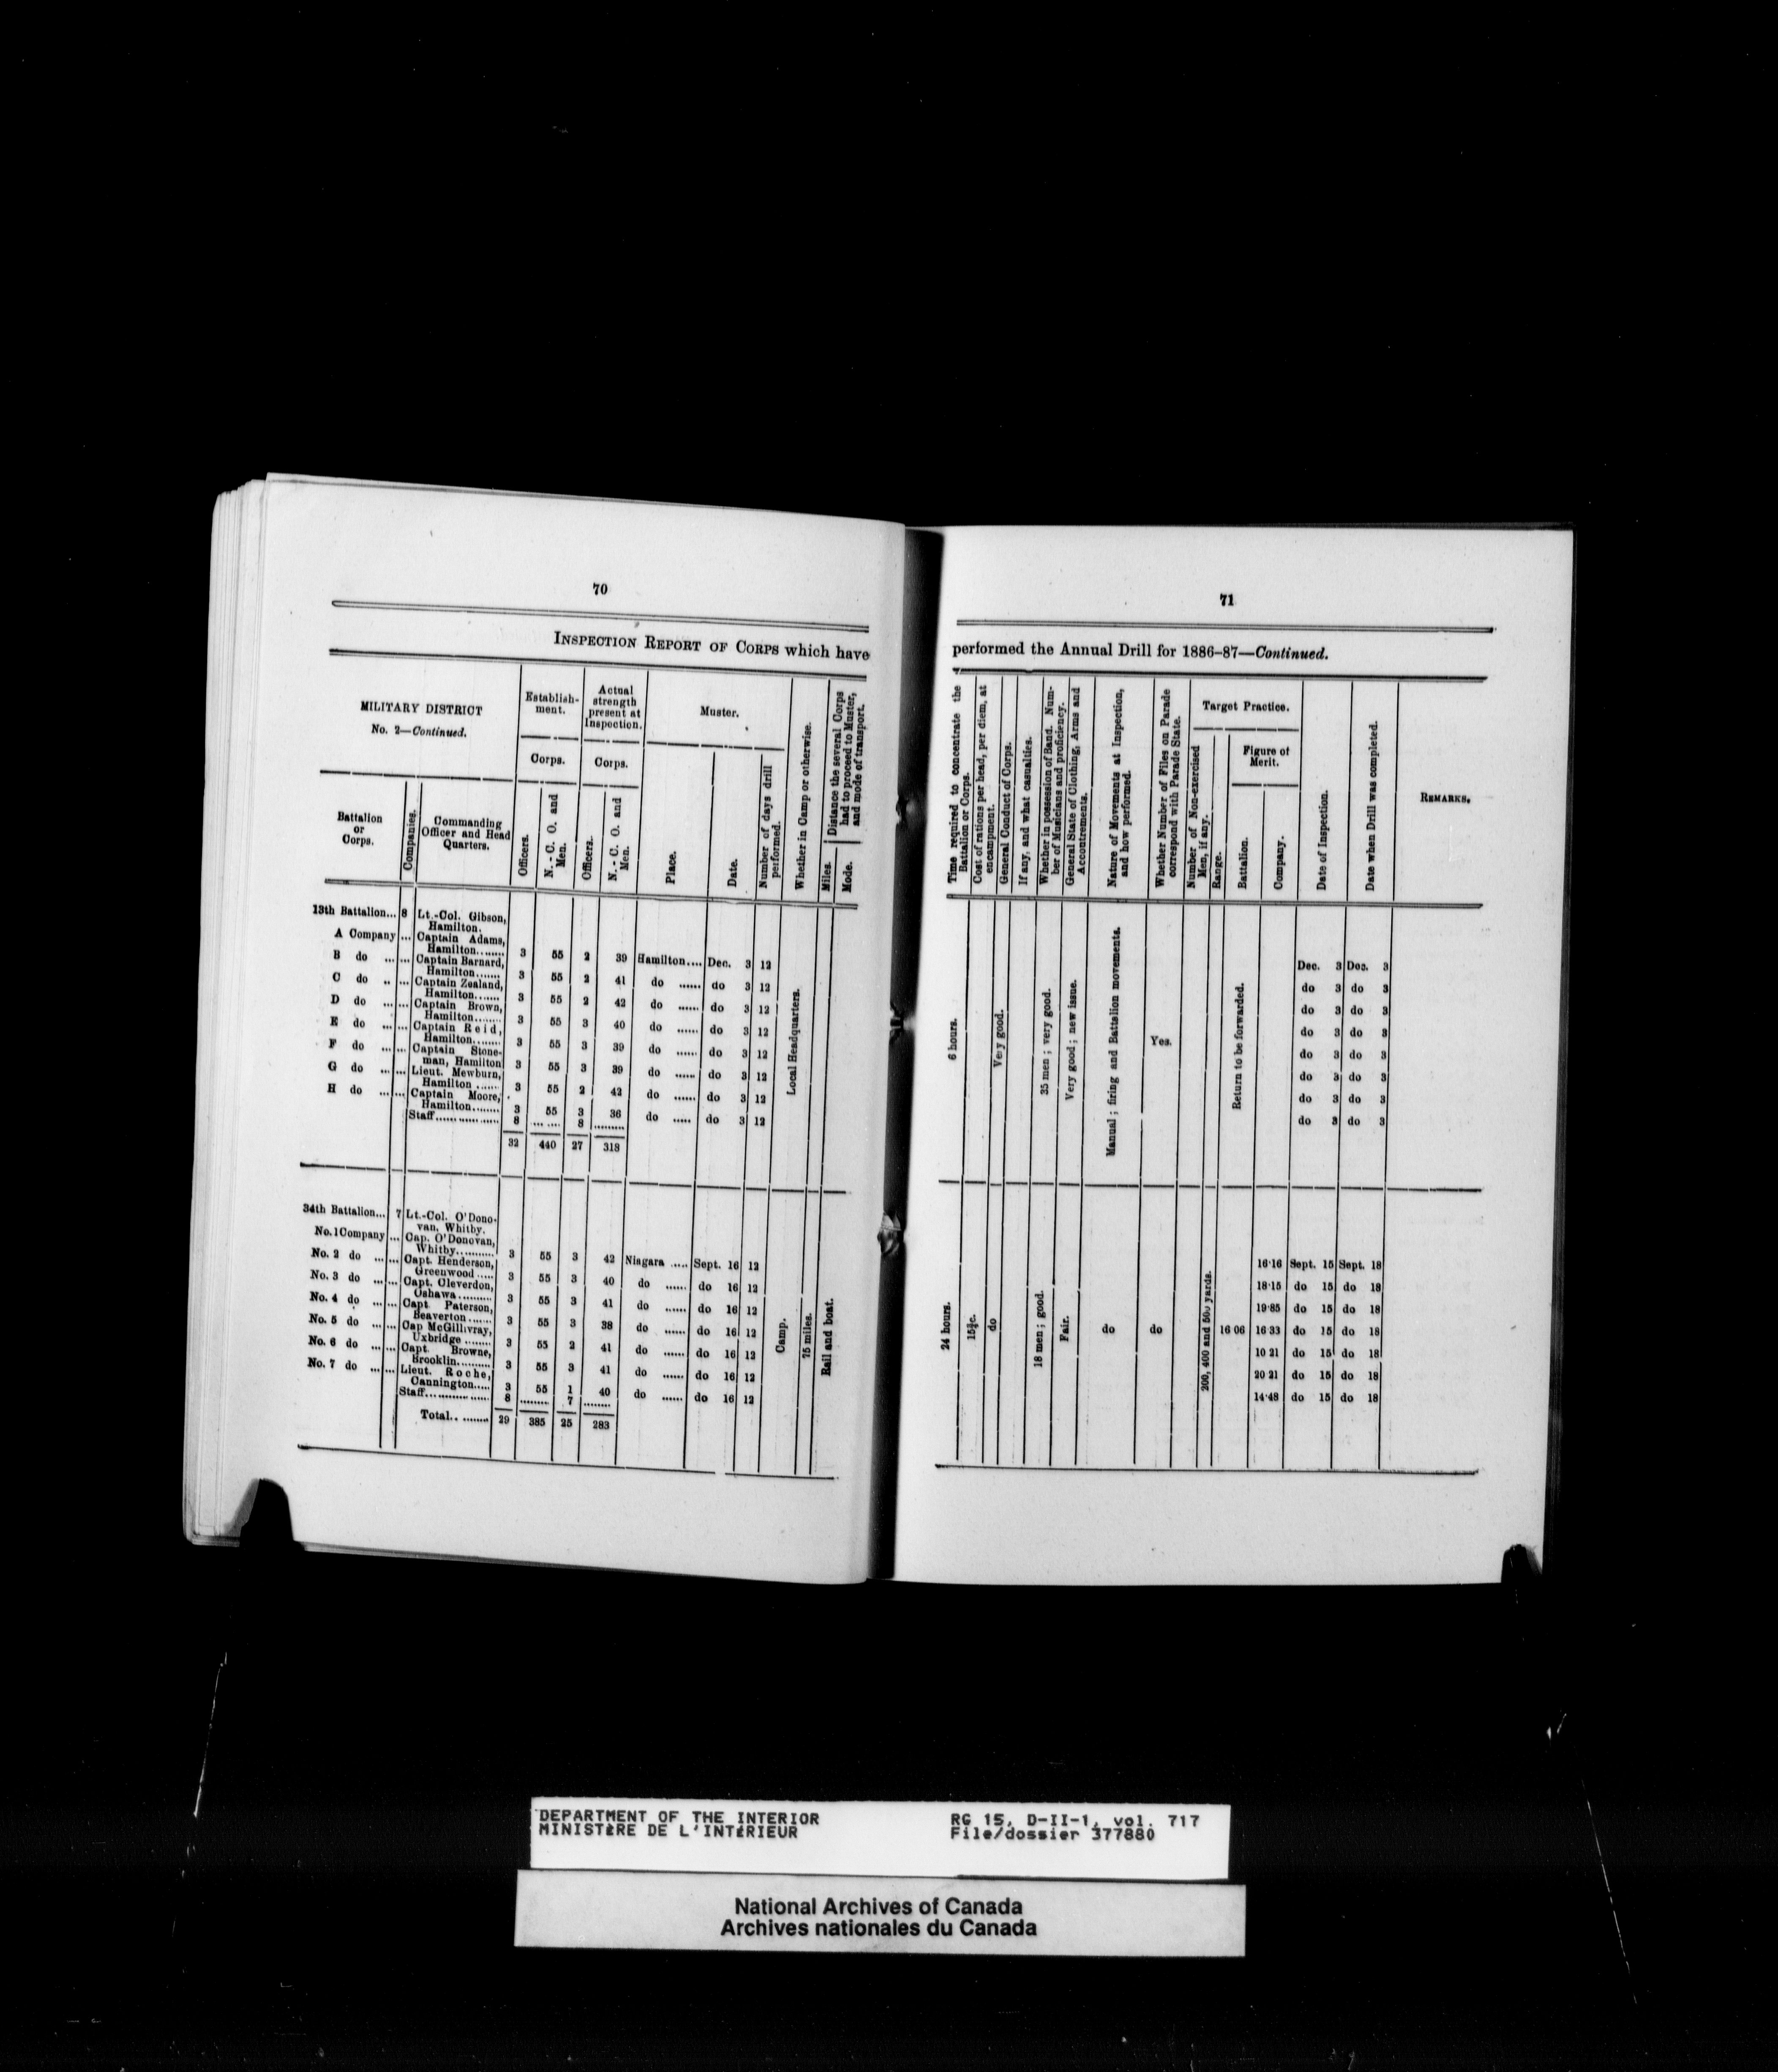 70
INSPECTION REPORT OF CORPS which have
MILITARY DISTRICT
No. 2—Continued.
Establish-
ment.
Actual
strength
present at
Inspection.
Muster.
Whether in Camp or otherwise.
Distance the several Corps
had to proceed to Muster,
and mode of transport.
Corps.
Corps.
Battalion
or
Corps.
Companies.
Commanding
Officer and Head
Quarters.
Officers.
N.-C. O. and
Men.
Officers.
N.-C. O. and
Men.
Place.
Date.
Number of days drill
performed.
Miles.
Mode.
13th Battalion... 8 Lt.-Col. Gibson,
Hamilton.
A Company ... Captain Adams,
Hamilton........ 3 55 2 39 Hamilton.... Dec. 3 12
B do ... ... Captain Barnard,
Hamilton....... 3 55 2 41 do ...... do 3 12
C do .. ... Captain Zealand,
Hamilton....... 3 55 2 42 do ...... do 3 12
D do ... ... Captain Brown,
Hamilton........ 3 55 3 40 do ...... do 3 12
E do ... ... Captain Reid,
Hamilton........ 3 55 3 39 do ...... do 3 12
F do ... ... Captain Stone-
man, Hamilton 3 55 3 39 do ...... do 3 12
G do ... ... Lieut. Mewburn,
Hamilton ...... 3 55 2 42 do ...... do 3 12
H do ... ... Captain Moore,
Hamilton........ 3 55 3 36 do ..... do 3 12
Staff.................. 8 ....... 8 .........
32 440 27 318
Local Headquarters.
34th Battalion... 7 Lt.-Col. O'Dono-
van, Whitby.
No. 1 Company ... Cap. O'Donovan,
Whitby........... 3 55 3 42 Niagara ..... Sept. 16 12
No. 2 do ... ... Capt. Henderson,
Greenwood ..... 3 55 3 40 do ...... do 16 12
No. 3 do ... ... Capt. Cleverdon,
Oshawa.......... 3 55 3 41 do ...... do 16 12
No. 4 do ... ... Capt Paterson,
Beaverton....... 3 55 3 38 do ...... do 16 12
No. 5 do ... ... Cap McGillivray,
Uxbridge ........ 3 55 2 41 do ...... do 16 12
No. 6 do ... ... Capt. Browne,
Brooklin.......... 3 55 3 41 do ...... do 16 12
No. 7 do ... ... Lieut. Roche,
Cannington..... 3 55 1 40 do ...... do 16 12
Staff.................. 8 ......... 7 ........
Total.......... 29 385 25 283
Camp.
75 miles.
Rail and boat.
71
performed the Annual Drill for 1886-87—Continued.
Time required to concentrate the
Battalion or Corps.
Cost of rations per head, per diem, at
encampment.
General Conduct of Corps.
If any, and what casualties.
Whether in possession of Band. Num-
ber of Musicians and proficiency.
General State of Clothing, Arms and
Accoutrements.
Nature of Movements at Inspection,
and how performed.
Whether Number of Files on Parade
correspond with Parade State.
Target Practice.
Number of Non-exercised
Men, if any.
Range.
Figure of
Merit.
Battalion.
Company.
Date of Inspection.
Date when Drill was completed.
REMARKS.
6 hours.
Very good.
35 men ; very good.
Very good ; new issue.
Manual ; firing and Battalion movements.
Yes.
Return to be forwarded.
Dec. 3 Dec. 3
do 3 do 3
do 3 do 3
do 3 do 3
do 3 do 3
do 3 do 3
do 3 do 3
do 3 do 3
24 hours.
15¾c.
do
18 men ; good.
Fair.
do
do
200, 400 and 500 yards.
16 06
16·16 Sept. 15 Sept. 18
18·15 do 15 do 18
19·85 do 15 do 18
16 33 do 15 do 18
10 21 do 15 do 18
20 21 do 15 do 18
14·48 do 15 do 18
DEPARTMENT OF THE INTERIOR
MINISTÈRE DE L'INTÉRIEUR
RG 15, D-II-1, vol. 717
File/dossier 377880
National Archives of Canada
Archives nationales du Canada